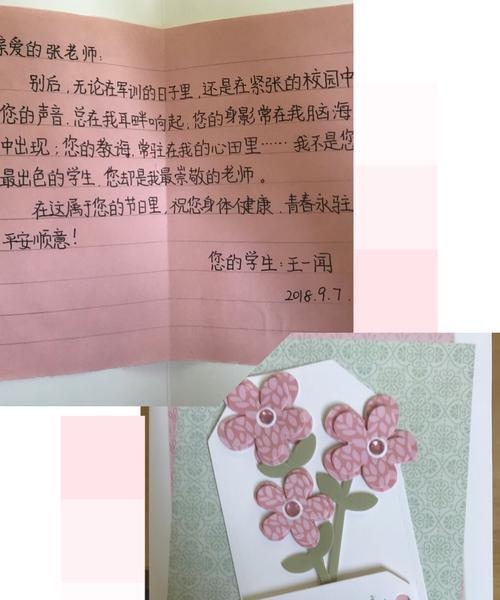 亲爱的张老师:
别后,无论在军训的日子里,还是在紧张的校园中
您的声音,总在我耳畔响起,您的身影常在我脑海
中出现;您的教诲,常驻在我的心田里……我不是您
最出色的学生,您却是我最崇敬的老师。
在这属于您的节日里,祝您身体健康,青春永驻
平安顺意!
您的学生:王一闻
2018.9.7.